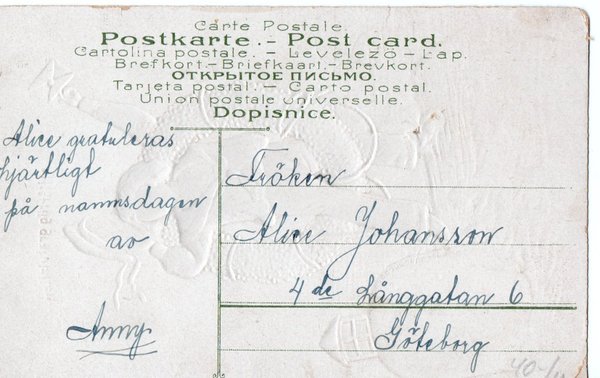 Carte Postale.
Postkarte. - Post card.
Cartolina postale. - Levelező-Lap.
Brefkort.-Briefkaart.-Brevkort.
ОТКРЫТОЕ ПИСЬМО.
Tarjeta postal. - Carto postal.
Union postale universelle.
Dopisnice.
Alice gratuleras
hjärtligt
på namnsdagen
av
Anny
Fröken
Alice Johansson
4 de Långgatan 6
Göteborg